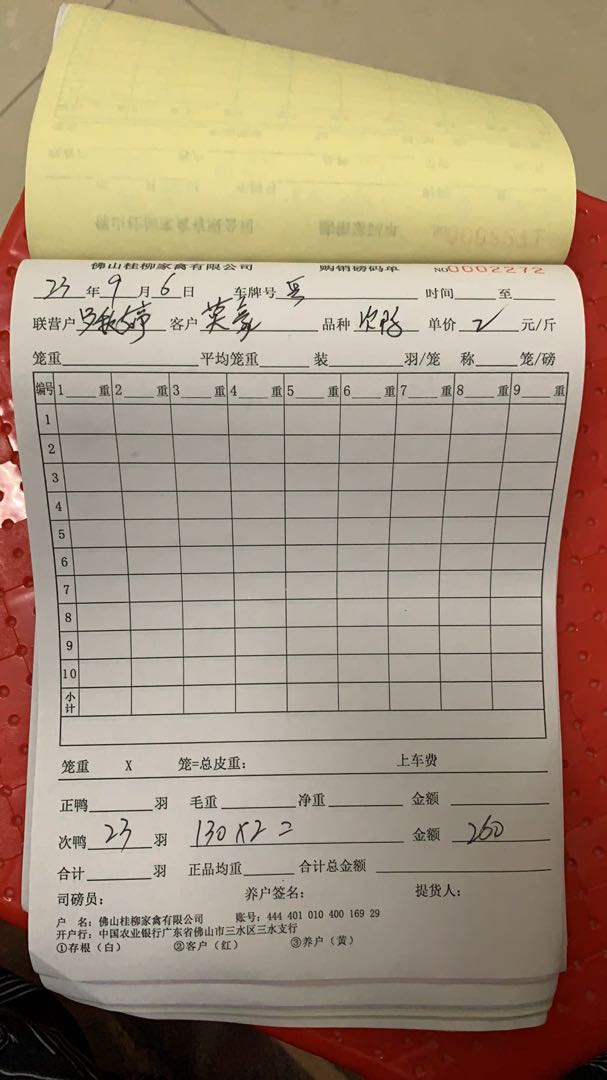 佛山桂柳家禽有限公司 购销磅码单 NO0002272
23年9月6日 车牌号 时间 至
联营户 客户 英豪 品种 次鸭 单价 2 元/斤
笼重 平均笼重 装 羽/笼 称 笼/磅
编号 1 重 2 重 3 重 4 重 5 重 6 重 7 重 8 重 9 重
1
2
3
4
5
6
7
8
9
10
小计
笼重 X 笼=总皮重: 上车费
正鸭 羽 毛重 净重 金额
次鸭 23 羽 130×2= 金额 260
合计 羽 正品均重 合计总金额
司磅员: 养户签名: 提货人:
户 名: 佛山桂柳家禽有限公司 账号: 444 401 010 400 169 29
开户行: 中国农业银行广东省佛山市三水区三水支行
①存根(白) ②客户(红) ③养户(黄)